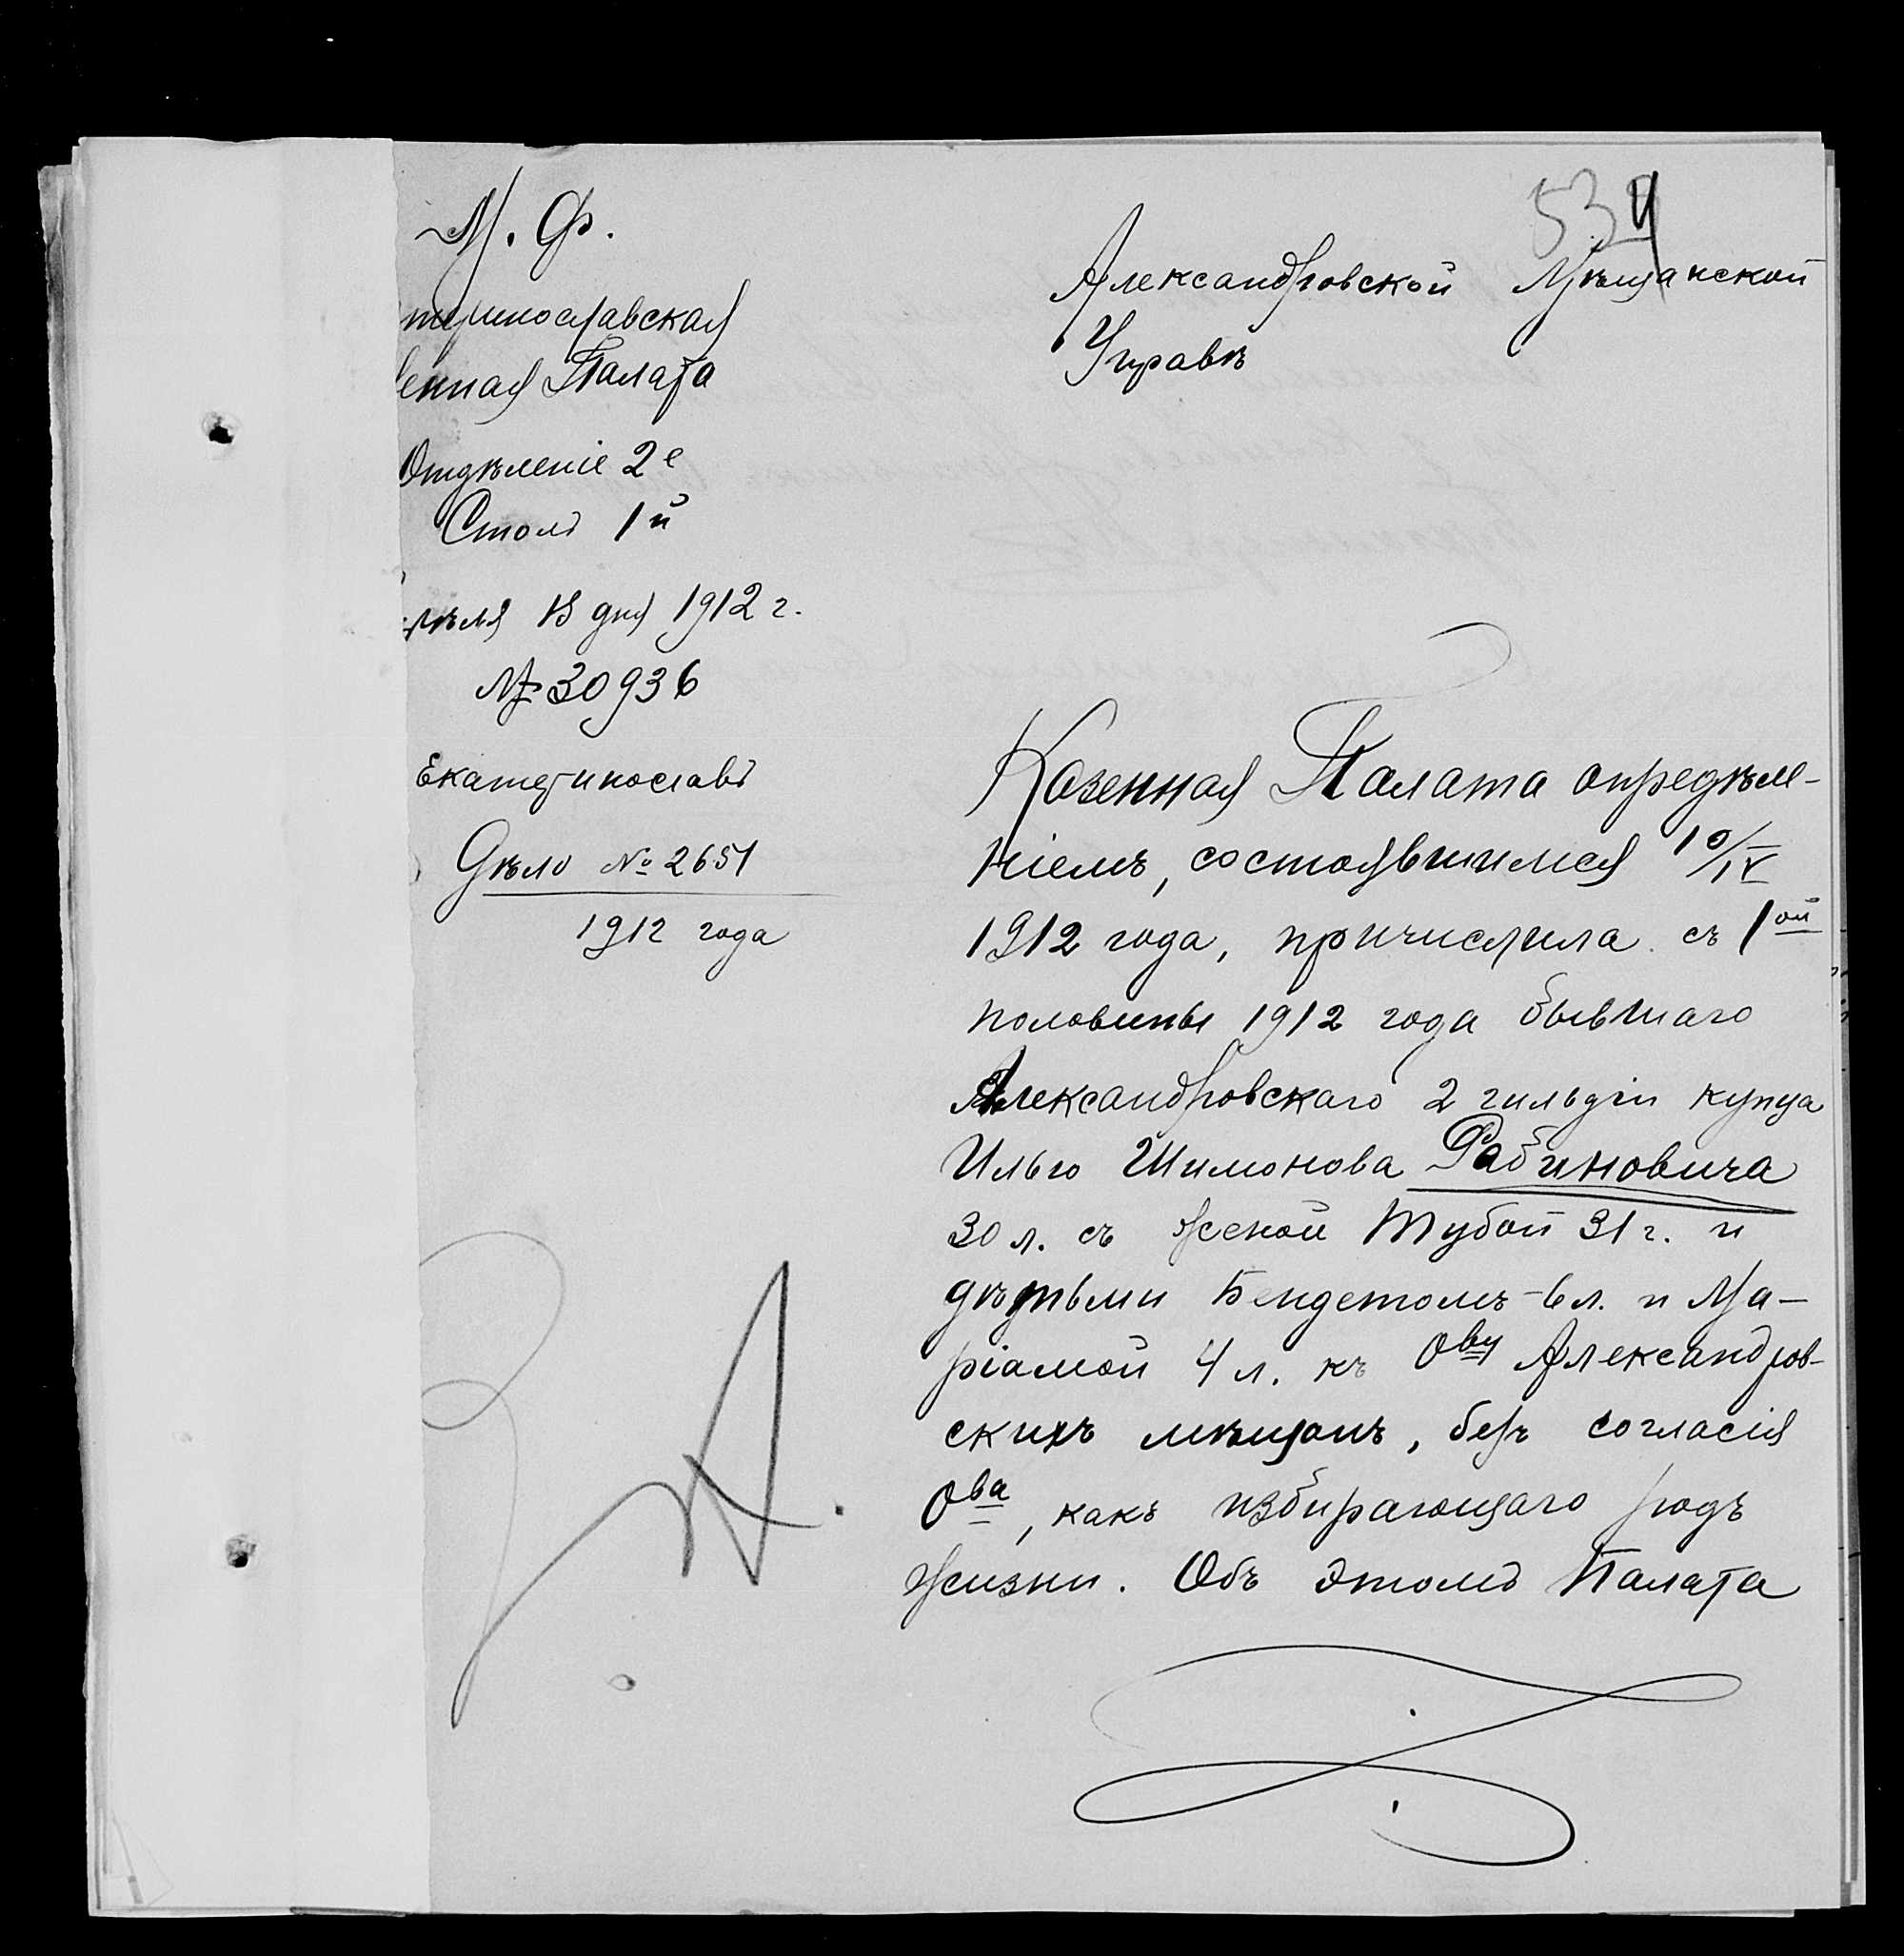 М. Ф.
теринославская
енная Палата
Отдѣленіе 2е
Столъ 1й
рѣля 13 дня 1912 г.
№ 30936
Екатеринославъ
Дѣло № 2651
1912 года
534
Александровской Мѣщанской
Управѣ
Казенная Палата опредѣле-
ніемъ, состоявшимся 10/IV
1912 года, причислила съ 1ой
половины 1912 года бывшаго
Александровскаго 2 гильдіи купца
Илью Шимонова Рабиновича
30 л. съ женой Тубой 31 г. и
дѣтьми Бендетомъ - 6 л. и Ма-
ріамой 4 л. къ Ову Александров-
скихъ мѣщанъ, безъ согласія
Ова, какъ избирающаго родъ
жизни. Объ этомъ Палата